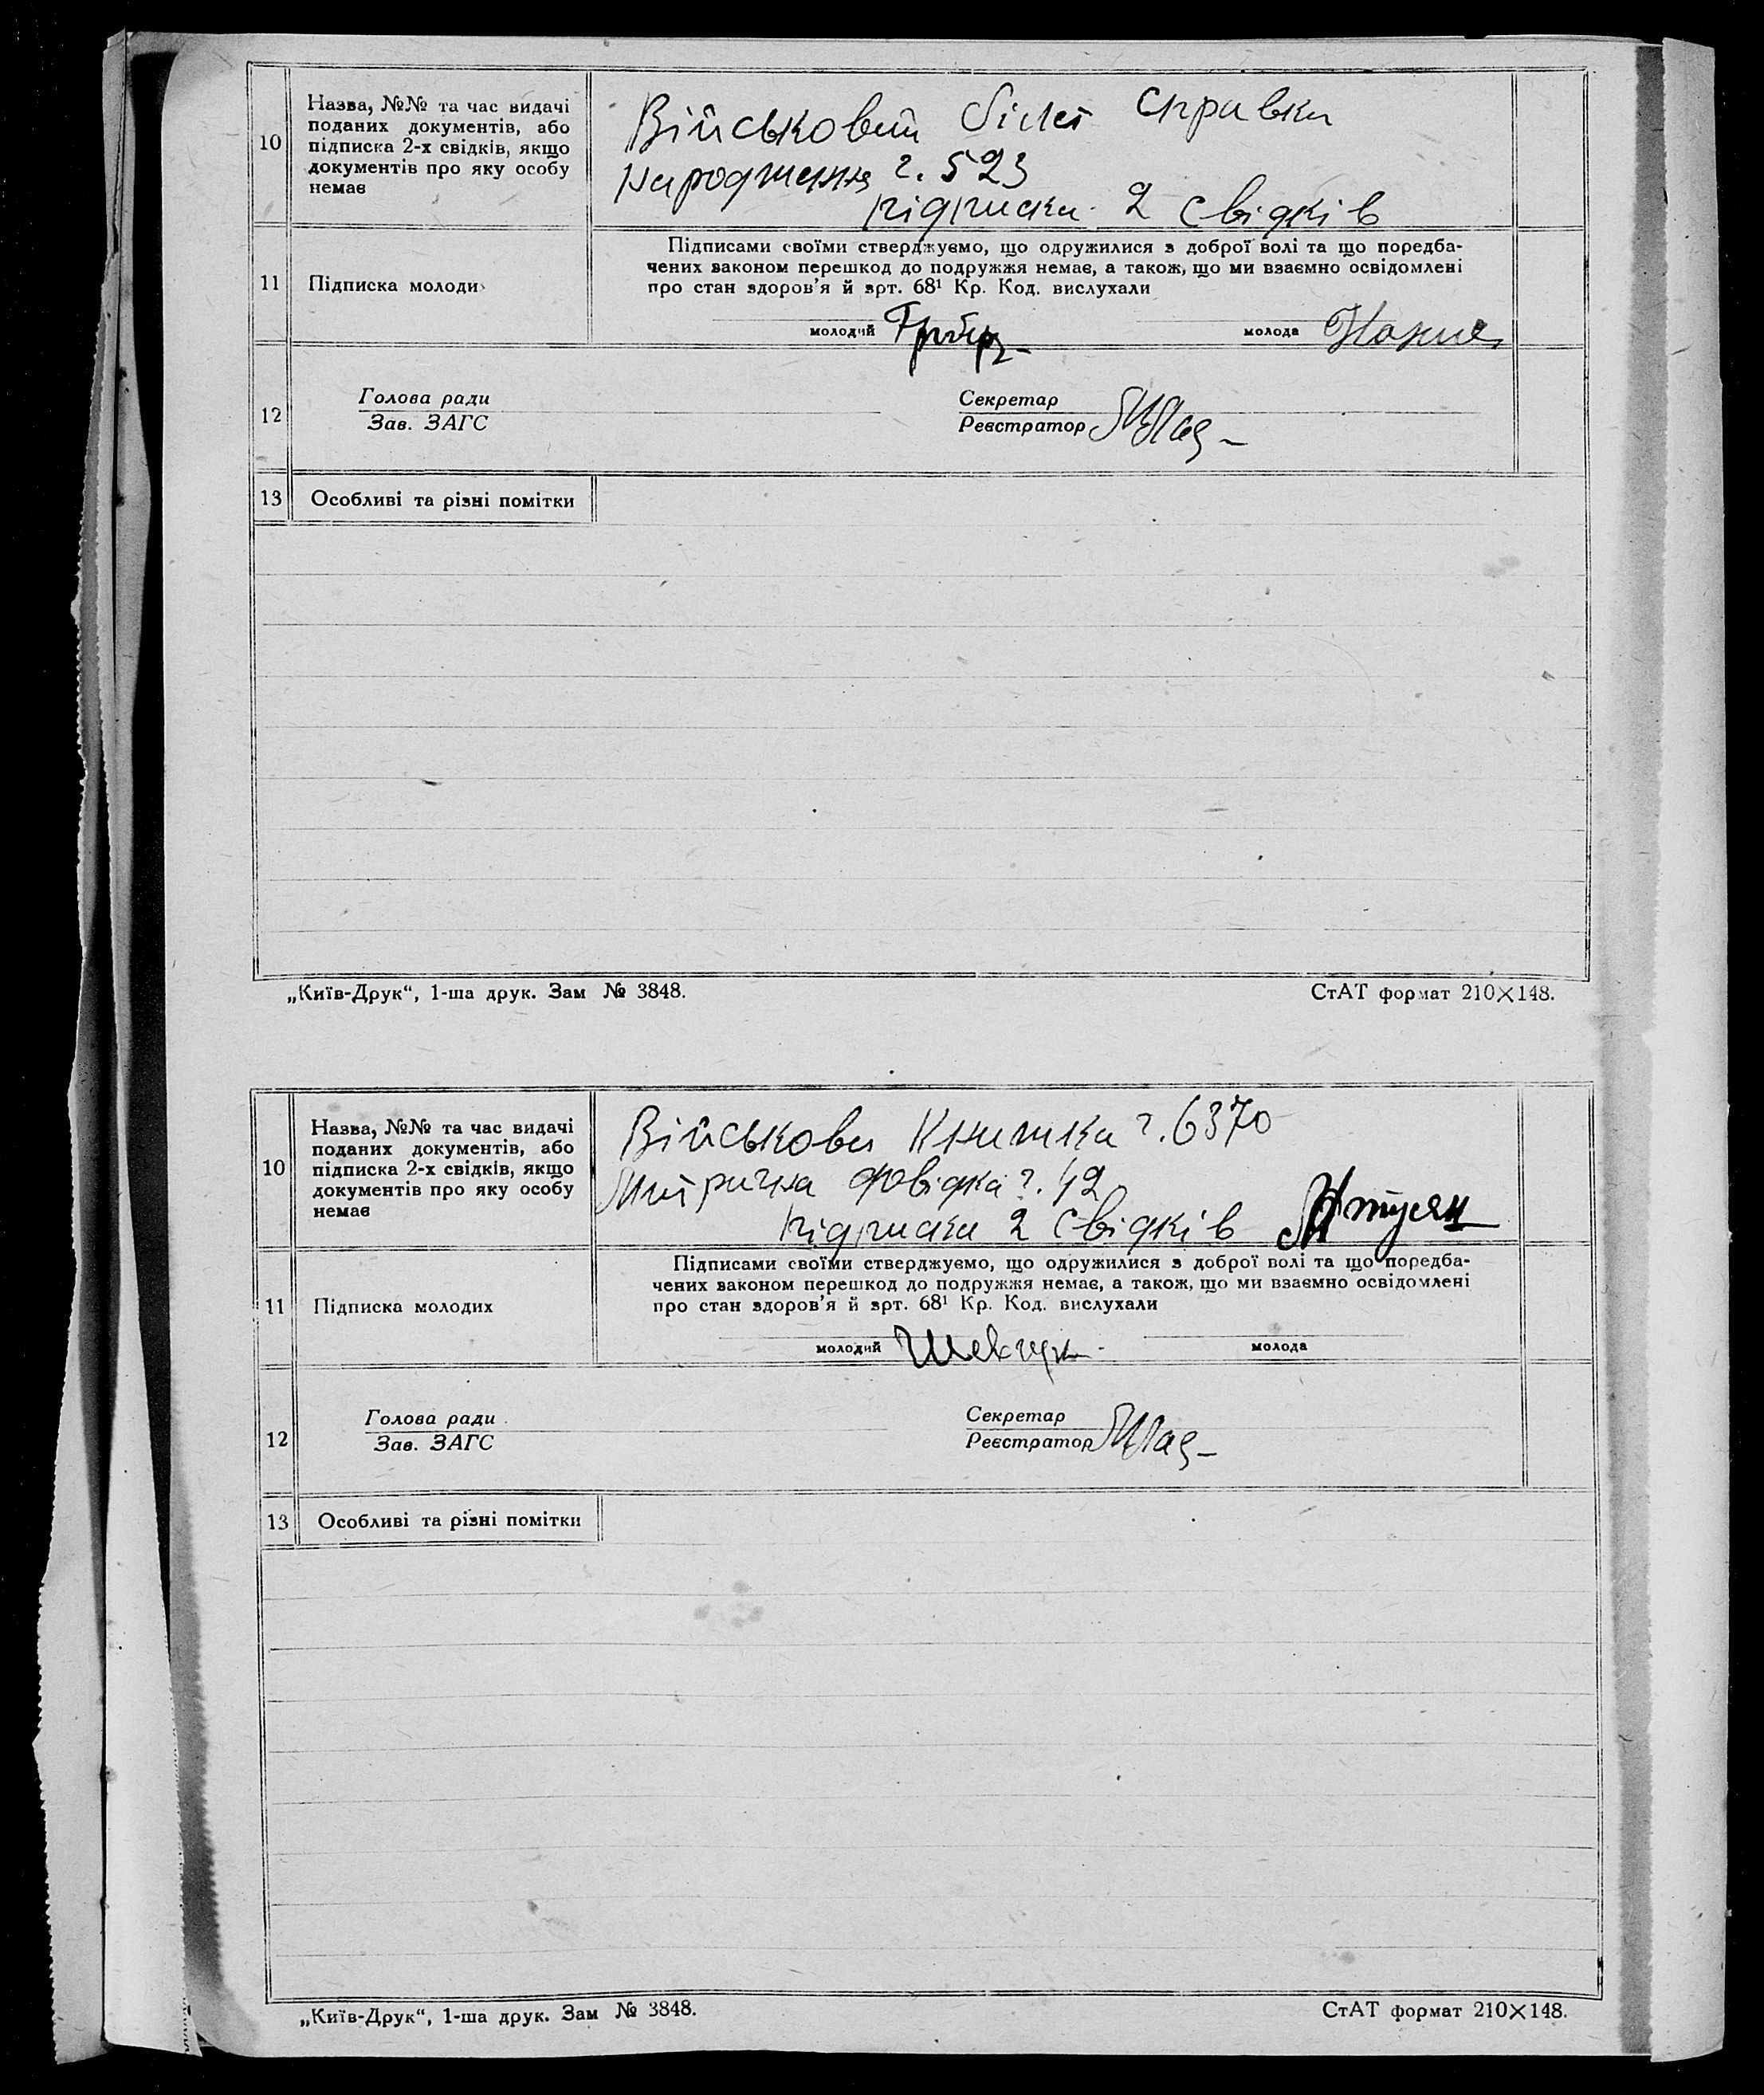 10
Назва, №№ та час видачі
поданих документів, або
підписка 2-х свідків, якщо
документів про яку особу
немає
Військовий білет справка
народження ч. 523
підписка 2 свідків
11
Підписка молоди
Підписами своїми стверджуємо, що одружилися з доброї волі та що поредба-
чених законом перешкод до подружжя немає, а також, що ми взаємно освідомлені
про стан здоров'я й врт. 68¹ Кр. Код. вислухали
молодий
молода
12
Голова ради
Зав. ЗАГС
Секретар
Реєстратор
13
Особливі та різні помітки
„Київ-Друк“, 1-ша друк. Зам № 3848.
СтАТ формат 210×148.
10
Назва, №№ та час видачі
поданих документів, або
підписка 2-х свідків, якщо
документів про яку особу
немає
Військова Книжка ч. 6370
Митрична довідка ч. 42
підписка 2 свідків
11
Підписка молодих
Підписами своїми стверджуємо, що одружилися з доброї волі та що поредба-
чених законом перешкод до подружжя немає, а також, що ми взаємно освідомлені
про стан здоров'я й врт. 68¹ Кр. Код. вислухали
молодий Шевчук
молода
12
Голова ради
Зав. ЗАГС
Секретар
Реєстратор
13
Особливі та різні помітки
„Київ-Друк“, 1-ша друк. Зам № 3848.
СтАТ формат 210×148.